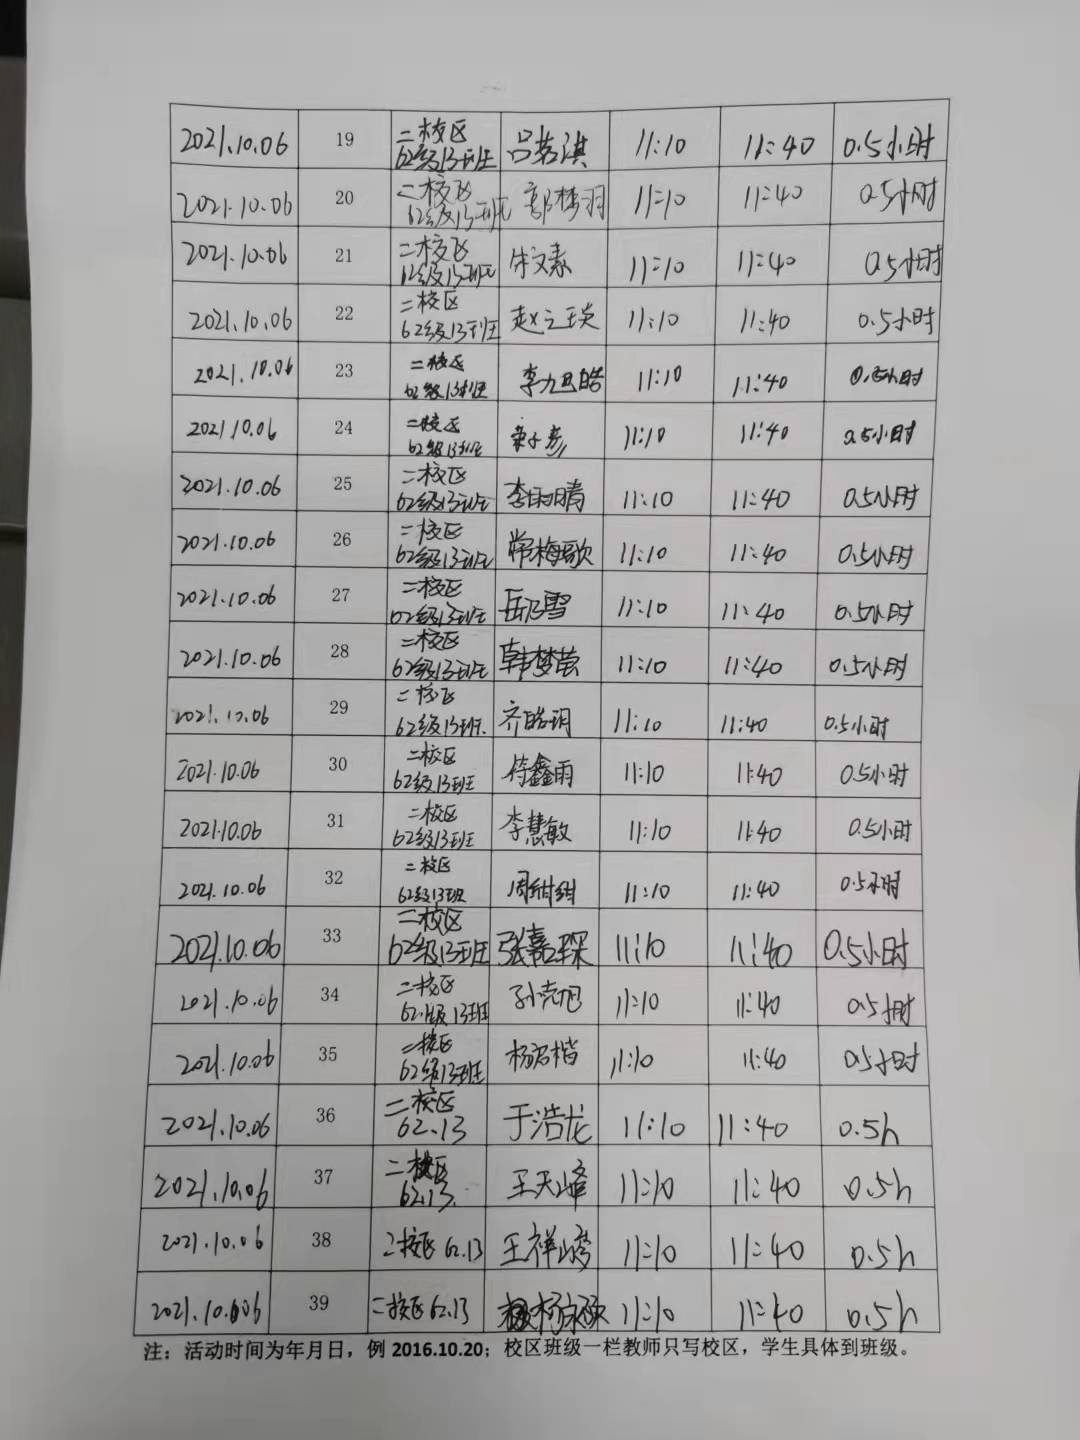 2021.10.06 19 二校区 吕茗淇 11:10 11:40 0.5小时
62级13班
2021.10.06 20 二校区 郭梦羽 11:10 11:40 0.5小时
62级13班
2021.10.06 21 二校区 宋文素 11:10 11:40 0.5小时
62级13班
2021.10.06 22 二校区 赵之琰 11:10 11:40 0.5小时
62级13班
2021.10.06 23 二校区 李 皓 11:10 11:40 0.5小时
62级13班
2021.10.06 24 二校区 11:10 11:40 0.5小时
62级13班
2021.10.06 25 二校区 李雨晴 11:10 11:40 0.5小时
62级13班
2021.10.06 26 二校区 常梅歌 11:10 11:40 0.5小时
62级13班
2021.10.06 27 二校区 岳乃雪 11:10 11:40 0.5小时
62级13班
2021.10.06 28 二校区 韩梦萤 11:10 11:40 0.5小时
62级13班
2021.10.06 29 二校区 齐皓玥 11:10 11:40 0.5小时
62级13班.
2021.10.06 30 二校区 符鑫雨 11:10 11:40 0.5小时
62级13班
2021.10.06 31 二校区 李慧敏 11:10 11:40 0.5小时
62级13班
2021.10.06 32 二校区 周甜甜 11:10 11:40 0.5小时
62级13班
2021.10.06 33 二校区 张嘉琛 11:10 11:40 0.5小时
62级13班
2021.10.06 34 二校区 孙克旭 11:10 11:40 0.5小时
62级13班
2021.10.06 35 二校区 杨名楷 11:10 11:40 0.5小时
62级13班
2021.10.06 36 二校区 于浩龙 11:10 11:40 0.5h
62.13
2021.10.06 37 二校区 王天峰 11:10 11:40 0.5h
62.13.
2021.10.06 38 二校区 62.13 王祥 11:10 11:40 0.5h
2021.10.006 39 二校区 62.13 杨永硕 11:10 11:40 0.5h
注：活动时间为年月日，例 2016.10.20；校区班级一栏教师只写校区，学生具体到班级。